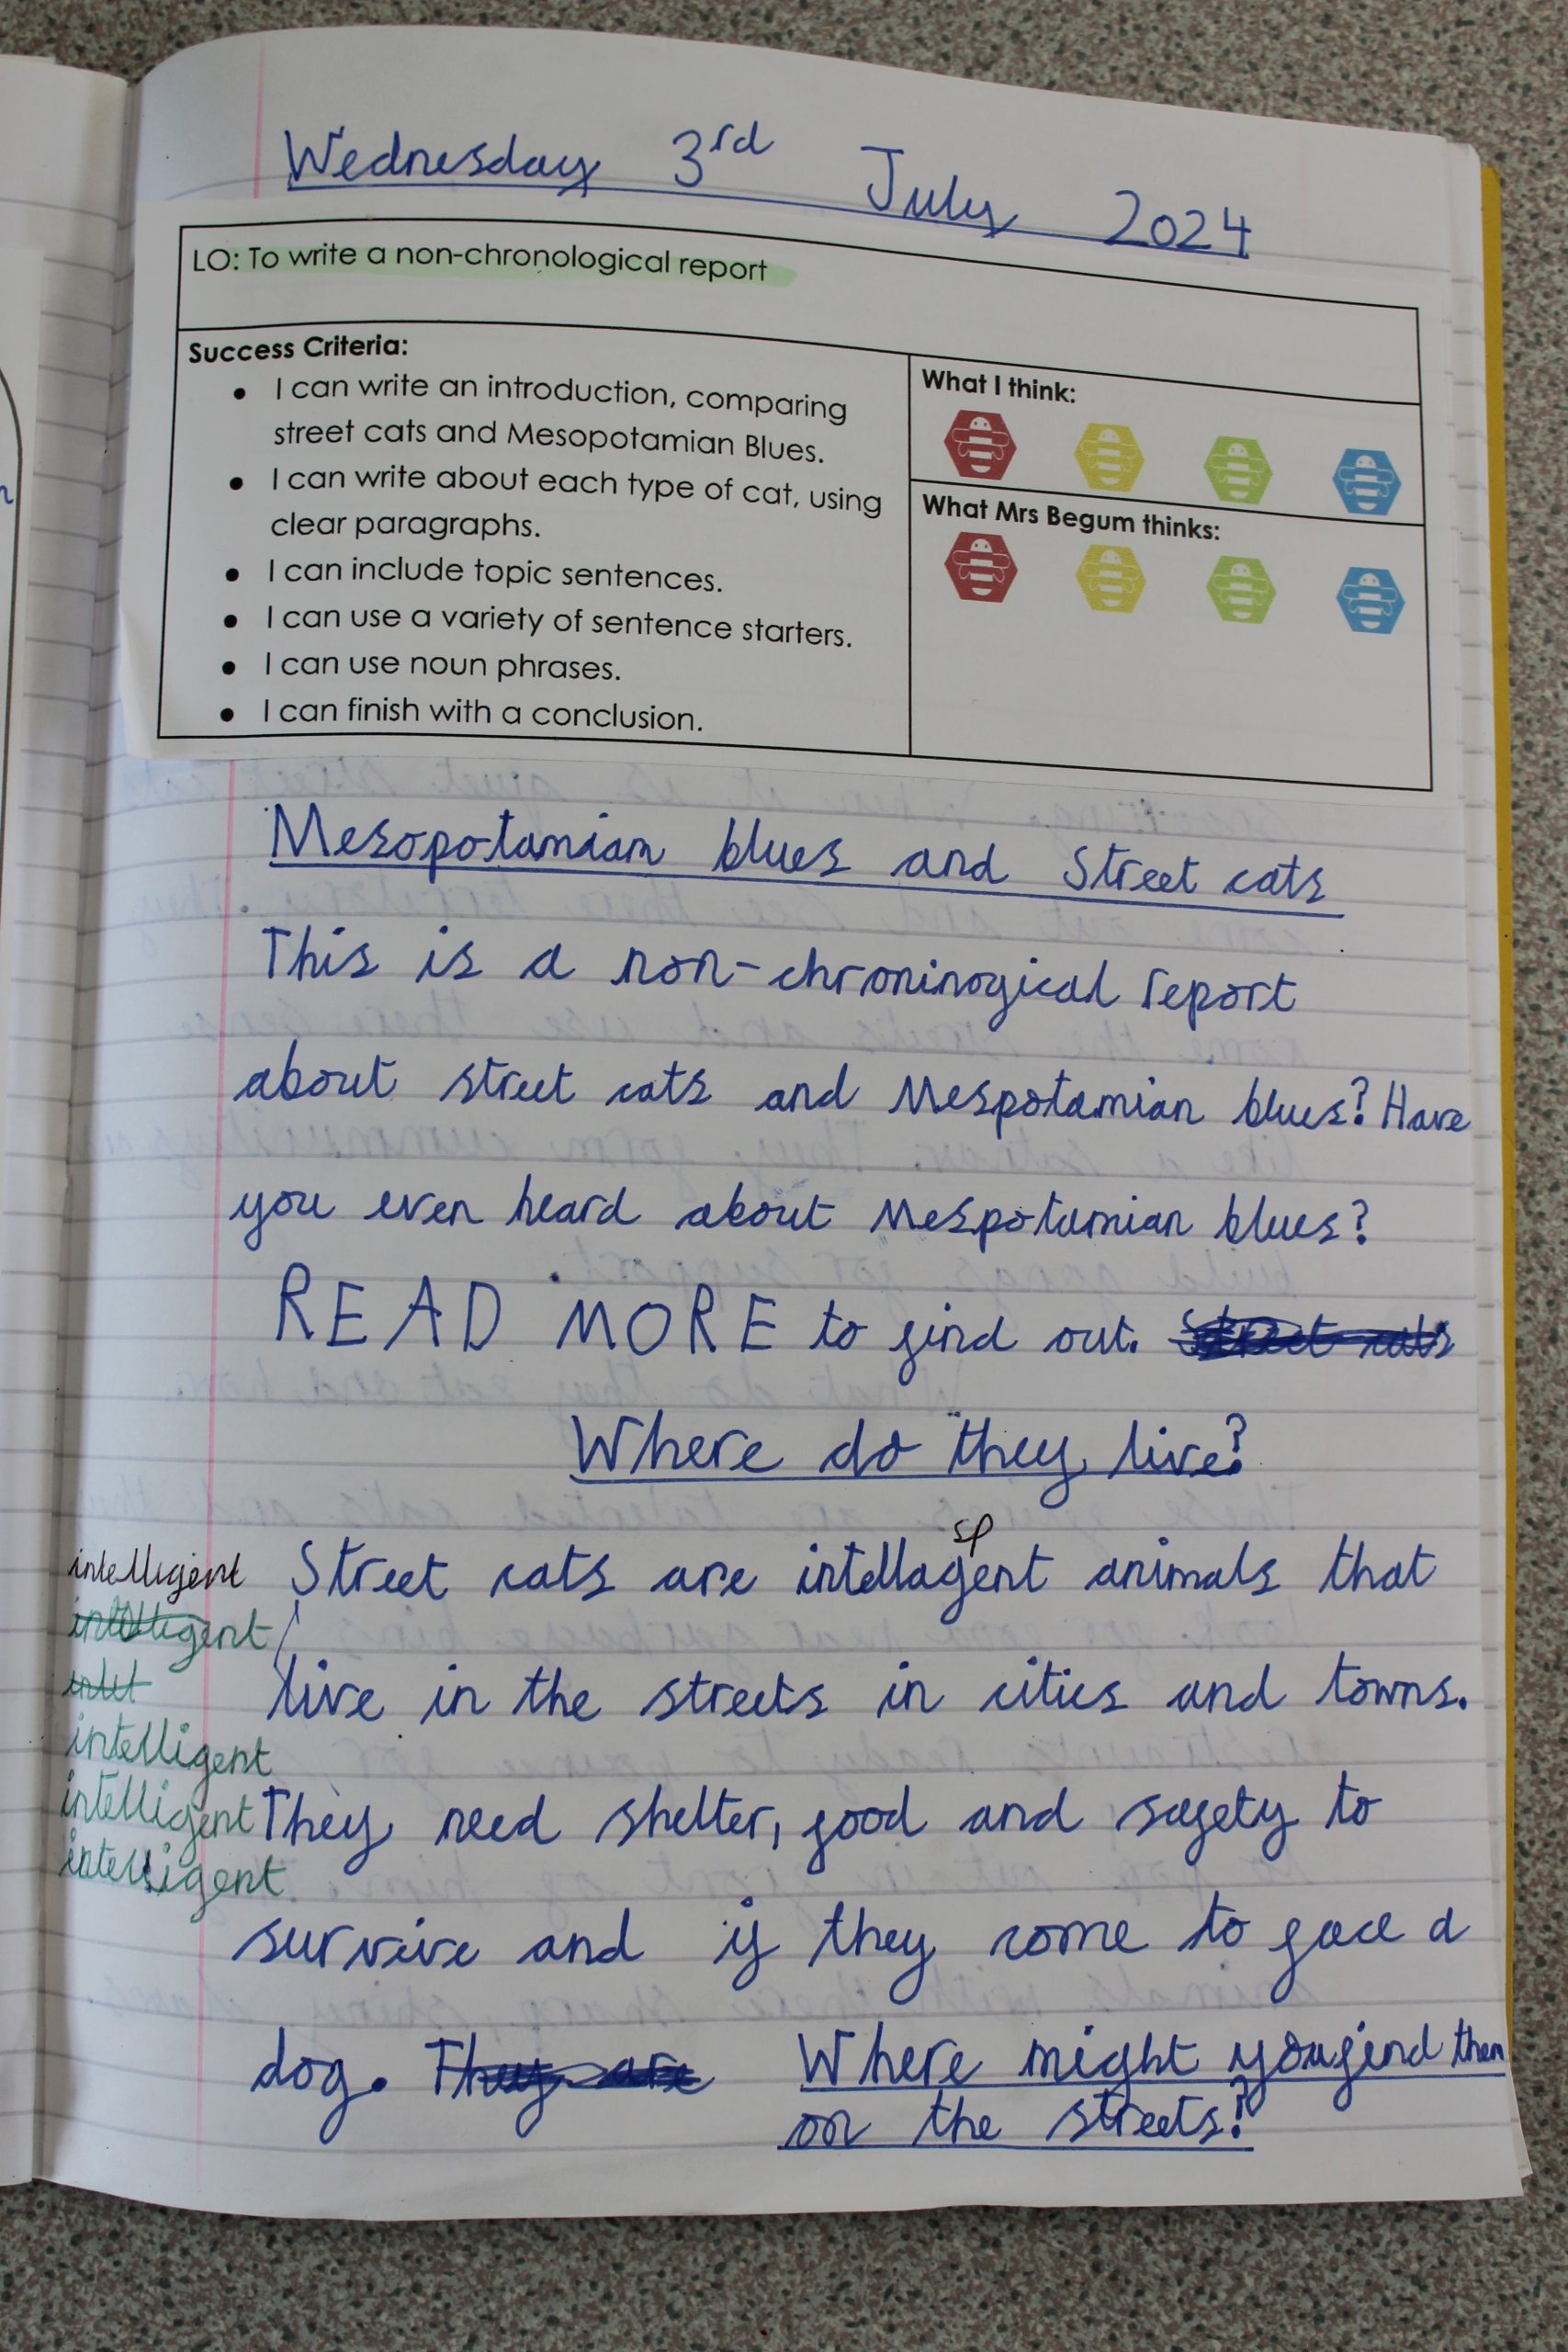 Wednesday 3rd July 2024
LO: To write a non-chronological report
Success Criteria:
• I can write an introduction, comparing
street cats and Mesopotamian Blues.
• I can write about each type of cat, using
clear paragraphs.
• I can include topic sentences.
• I can use a variety of sentence starters.
• I can use noun phrases.
• I can finish with a conclusion.
What I think:
What Mrs Begum thinks:
Mesopotamian blues and Street cats
This is a non-chroninogical report
about street cats and Mespotamian blues? Have
you even heard about Mespotamian blues?
READ MORE to find out. Street cats
Where do they live?
sp
intelligent Street cats are intellagent animals that
intelligent
live in the streets in cities and towns.
intel
intelligent
intelligent They need shelter, food and safety to
intelligent
survive and if they come to face a
dog. They are Where might you find them
on the streets?